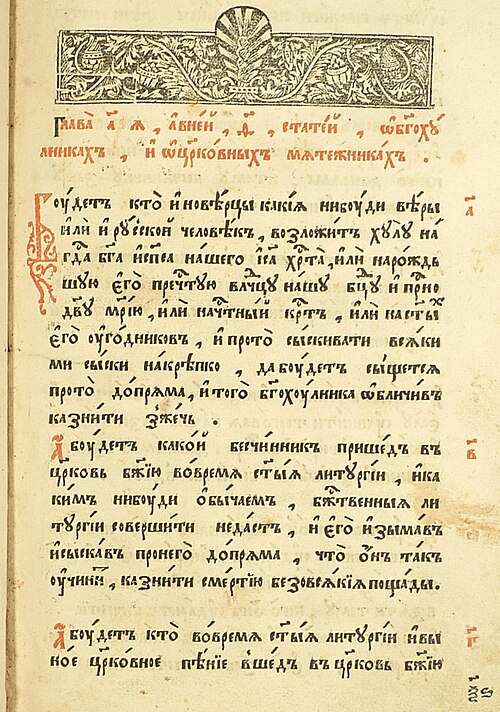 Глава̀ а҃ я , а҆вне́й , ѳ҃ , стате́й , ѡ҆бг҃охꙋ́
лникахъ , и҆ ѡ҆цр҃ко́вныхъ мѧте́жникахъ .
Бꙋ́детъ кто̀ и҆нове́рцы какі́ѧ нибꙋди ве́ры
и҆лѝ и҆рꙋ́ской человѣ́къ , возложи́тъ хꙋлꙋ̀ на́
гд҃а бг҃а и҆сп҃са на́шего і҆с҃а хр҃та̀ , и҆лѝ наро́ждь
шꙋю є҆гѡ̀ преч҃тꙋю влⷣчцꙋ на́шꙋ бц҃ꙋ и҆ прⷭ҇но
дв҃ꙋ мр҃і́ю , и҆лѝ начⷭ҇тны́й крⷭ҇тъ , и҆лѝ наст҃ы́хъ
є҆гѡ̀ оу҆го́дниковъ , и҆прото̀ сы́скивати всѧ́ки
ми сы́ски накрѣ́пко , да бꙋ́детъ сы́щетсѧ
прото̀ до́прѧма , и҆того̀ бг҃охꙋ́лника ѡ҆бличи́въ
казни́ти зже́чь .
А҆ бꙋ́детъ како́й безчи́нникъ прише́дъ въ
цр҃ковь бж҃їю вовре́мѧ ст҃ы́ѧ литꙋргі́и , и҆ка
ки́мъ нибꙋди ѻ҆бы́чаемъ , бжⷭ҇твенныѧ ли
тꙋргі́и соверши́ти неда́стъ , и҆ є҆гѡ̀ и҆зыма́въ
и҆сыска́въ пронего̀ до́прѧма , что̀ ѻ҆́нъ та́къ
оу҆чини́тъ , казни́ти сме́ртїю безовсѧ́кїѧ поща́ды .
А҆ бꙋ́детъ кто̀ вовре́мѧ ст҃ы́ѧ литꙋргі́и и҆вы
но́е цр҃ко́вное пѣ́нїе вше́дъ въ цр҃ковь бж҃їю
а҃
в҃
г҃